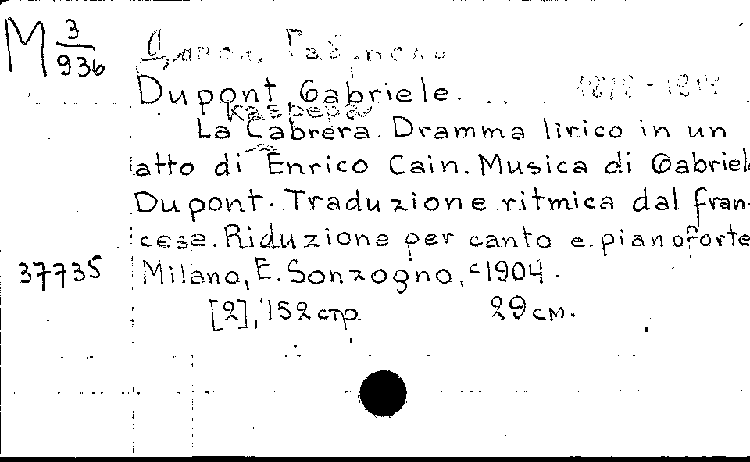 M 3/936
Dupont Gabriele.
La Cabrera. Dramma lirico in un
atto di Enrico Cain. Musica di Gabriele
Dupont. Traduzione ritmica dal fran-
cese. Riduzione per canto e pianoforte
37735 Milano, E. Sonzogno, c1904.
[2], 152 стр. 29 см.